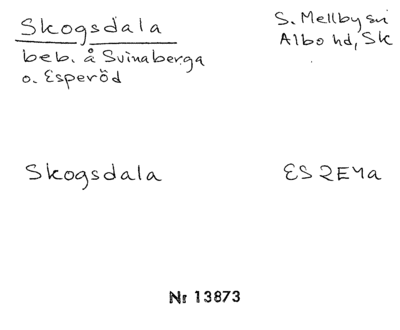 Skogsdala
S. Mellby sn
Albo hd, Sk
beb. å Svinaberga
o. Esperöd
Skogsdala
ES 2E4a
Nr 13873